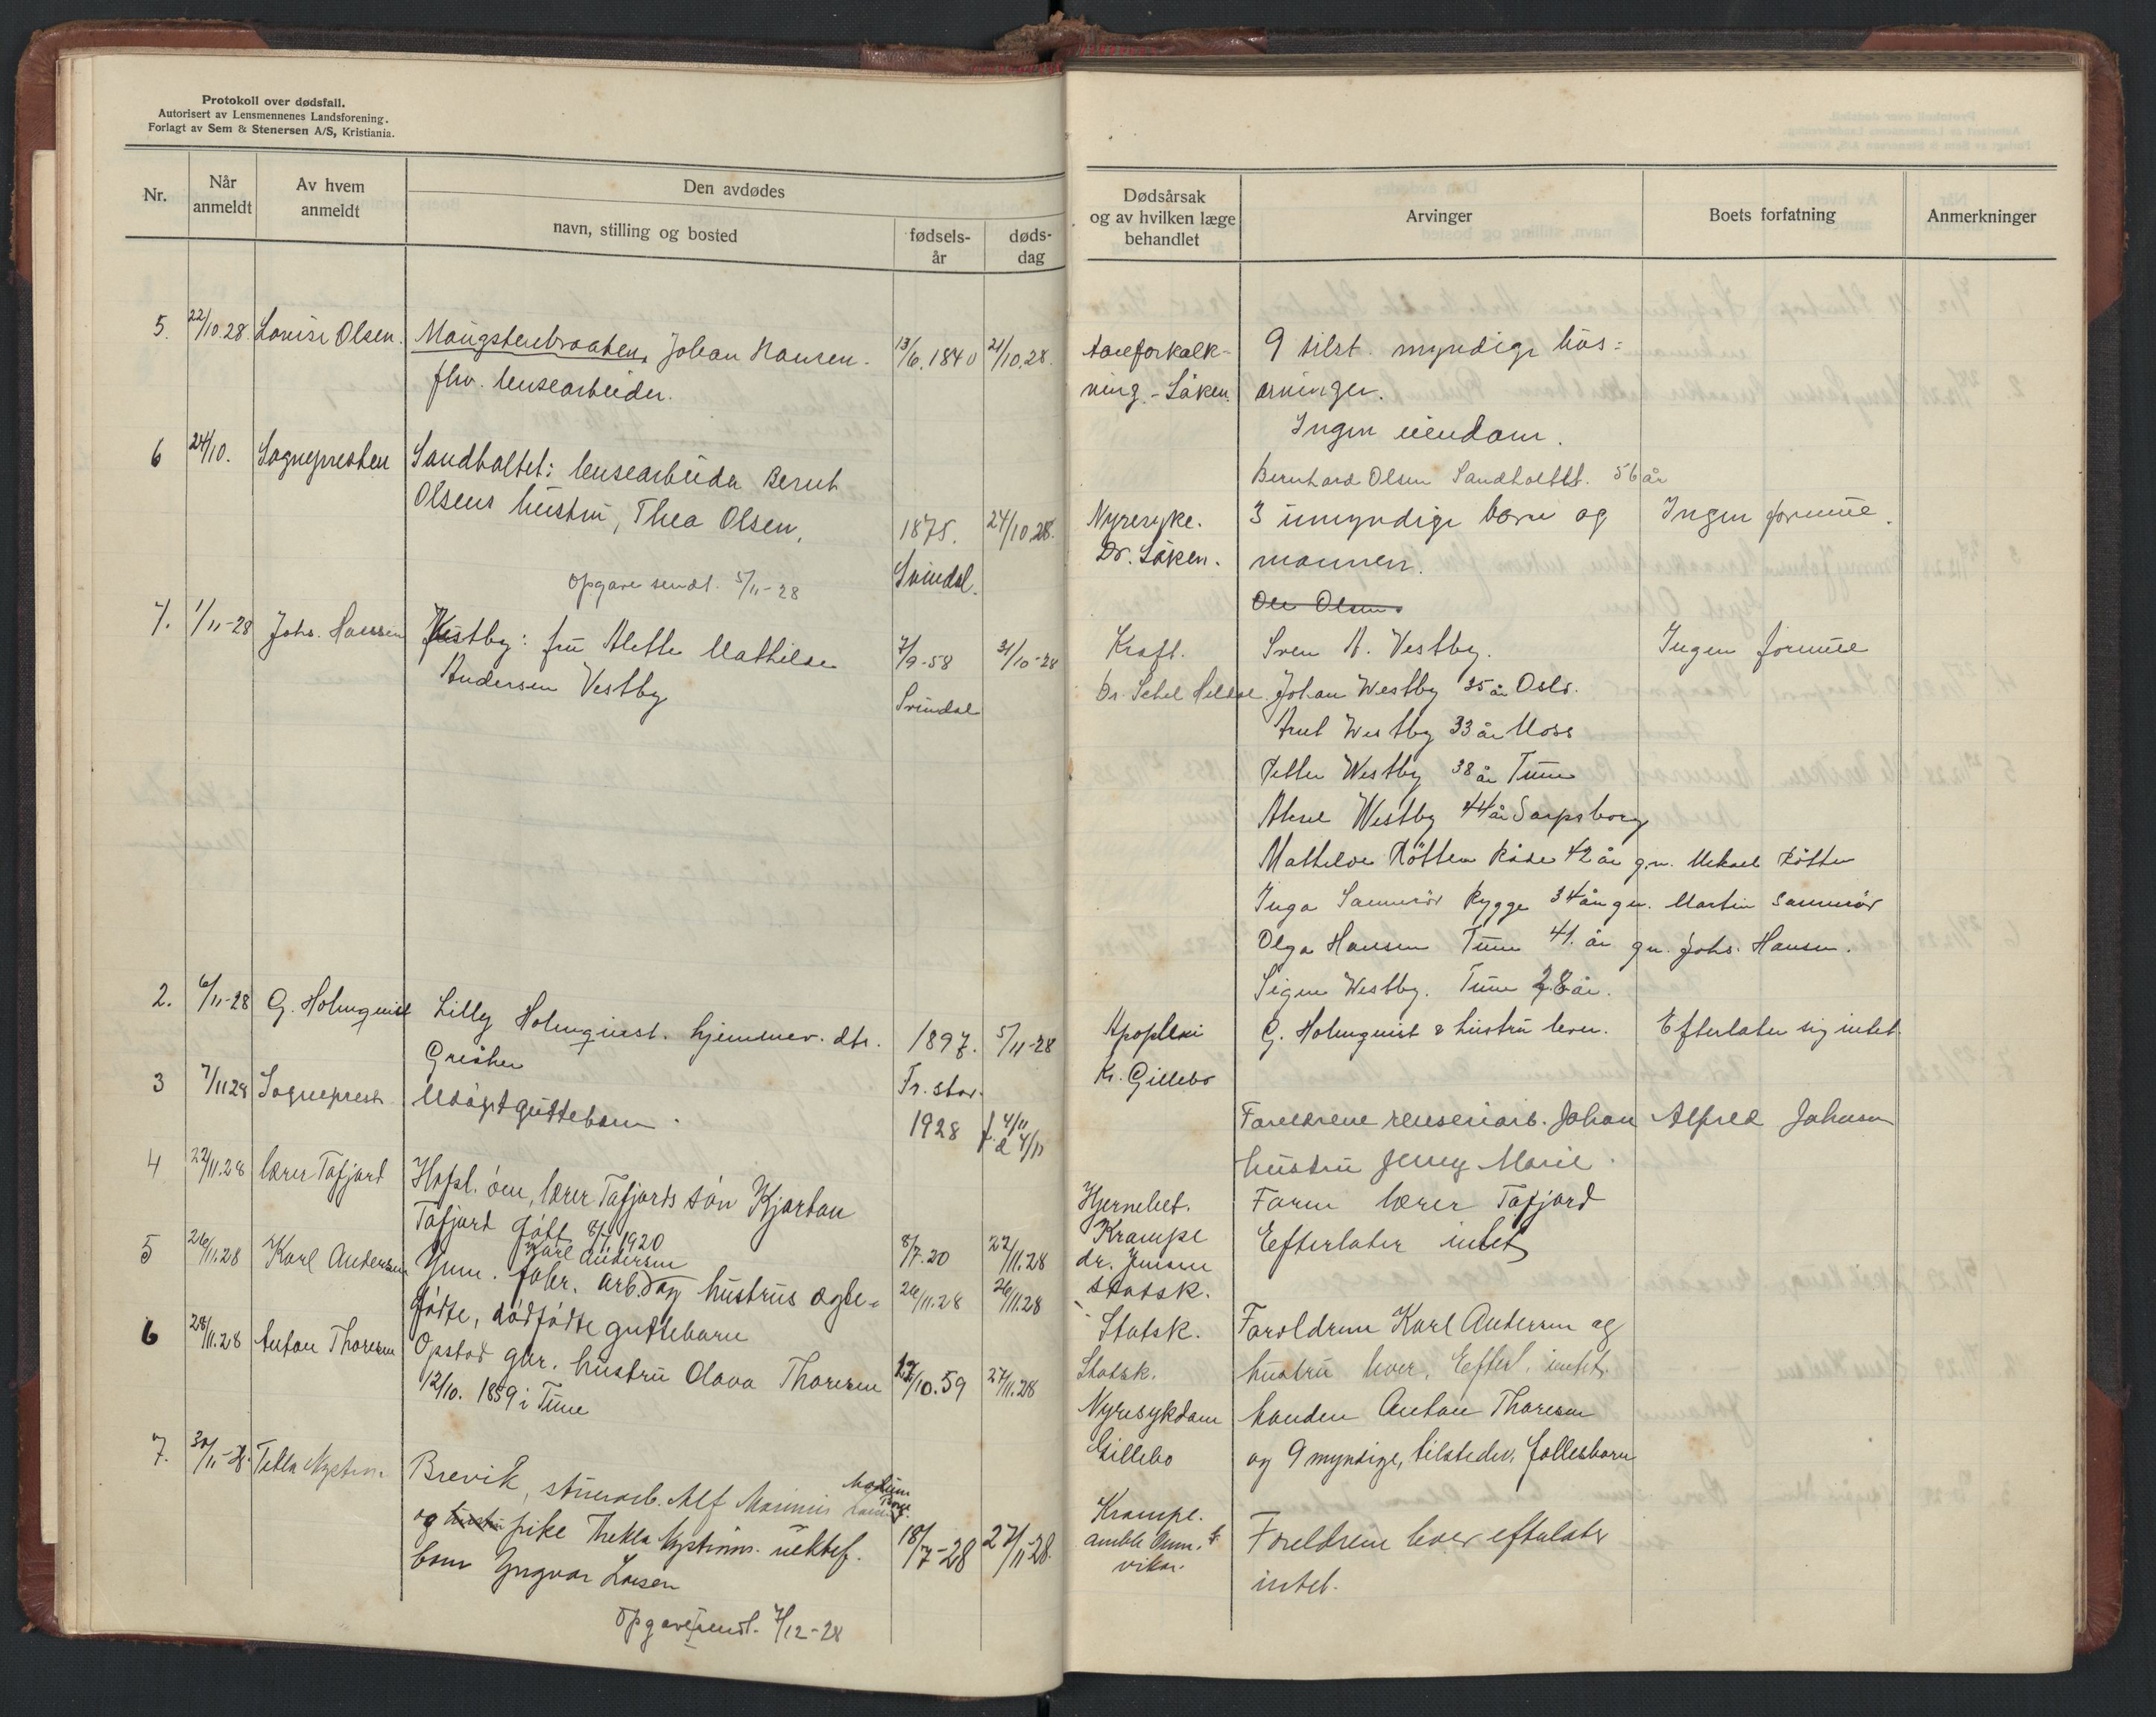 Protokoll over dødsfall.
Autorisert av Lensmennenes Landsforening.
Forlagt av Sem & Stenersen A/S, Kristiania.
Nr.
Når anmeldt
Av hvem anmeldt
Den avdødes
navn, stilling og bosted
fødselsår
dødsdag
5. 22/10.28 Lovise Olsen. Maugstenbraaten, Johan Hansen. 13/6.1840 21/10.28.
fhv. lensearbeider.
6 24/10. Sognepresten Sandholtet: lensearbeider Bernt
Olsens hustru, Thea Olsen, 1875. 24/10.28.
Svindal.
Opgave sendt. 5/11-28
7. 1/11-28 Johs. Hansen Vestby: fru Alette Mathilde 7/9-58 31/10-28
Andersen Vestby Svindal
2. 6/11-28 G. Holmquist Lilly Holmquist. hjemmev. dtr. 1897. 5/11-28
Greåker Fr.stad.
3 7/11 28 Sogneprest Udöpt guttebarn. 1928 f. 4/11
d 4/11
4 22/11.28 lærer Tafjord Hafsl. öen, lærer Tafjords sön Kjartan
Tafjord födt 8/7 1920 8/7.20 22/11.28
Karl Andersen
5 26/11.28 Karl Andersen Ynn. fabr. arb. og hustrus ægte- 26/11.28 26/11.28
födte, dödfödte guttebarn
6 28/11.28 Anton Thoresen Opstad gbr. hustru Olava Thoresen 12/10.59 27/11.28
12/10. 1859 i Tune
7. 30/11-28. Tekla Nyström Brevik, stuerarb. Alf Marinius Larsen
og hustru pike Thekla Nyströms uektef. 18/7-28 27/11-28.
barn Yngvar Larsen
Opgave sendt. 7/12-28
Dødsårsak
og av hvilken læge
behandlet
Arvinger
Boets forfatning
Anmerkninger
Aareforkalk- 9 tilst. myndige livs-
ning - Låken. arvinger.
Ingen eiendom.
Bernhard Olsen Sandholtet. 56 år
Nyresyke. 3 umyndige barn og Ingen formue.
Dr. Låken. mannen.
Ole Olsen
Kraft. Sven A. Vestby. Ingen formue
Johan Westby 35 år Oslo.
Arnt Westby 33 år Moss
Petter Westby 38 år Tune
Aksel Westby 44 år Sarpsborg
Mathilde Rötten Råde 42 år gm. Mikael Rötten
Inga Sannerör Rygge 34 år gm. Martin Sannerör
Olga Hansen Tune 41. år gm. Johs. Hansen.
Signe Westby. Tune 28 år.
Apopleksi G. Holmquist & hustru lever. Efterlater sig intet.
Kr. Gillebo
Foreldrene renseriarb. Johan Alfred Johansen
hustru Jenny Marie.
Hjernebet. Faren lærer Tafjord
Krampe Efterlater intet
dr. Jensen
statsk.
Statsk. Foreldrene Karl Andersen og
Statsk. hustru lever, Efterl. intet.
Nyresykdom manden Anton Thoresen
Gillebo og 9 myndige, tilstedev. fællesbarn
Krampe. Foreldrene lever efterlater
vikar. intet.